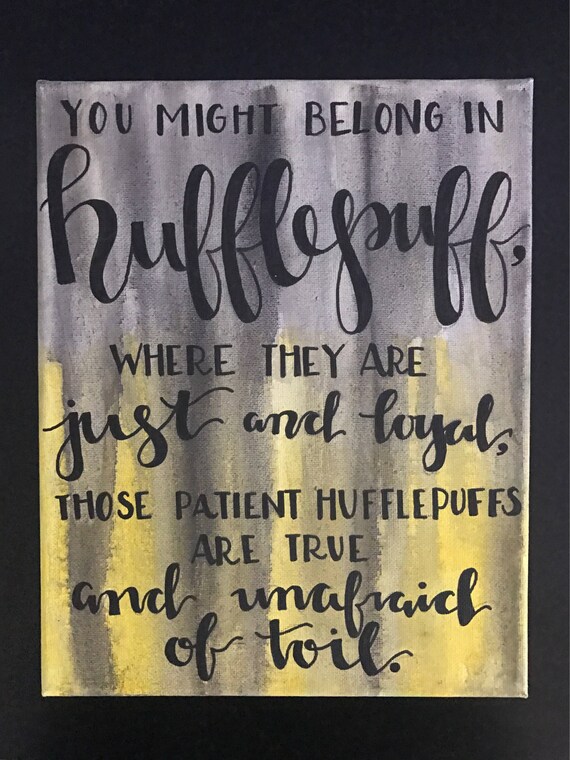 YOU MIGHT BELONG IN
hufflepuff,
WHERE THEY ARE
just and loyal,
THOSE PATIENT HUFFLEPUFFS
ARE TRUE
and unafraid
of toil.